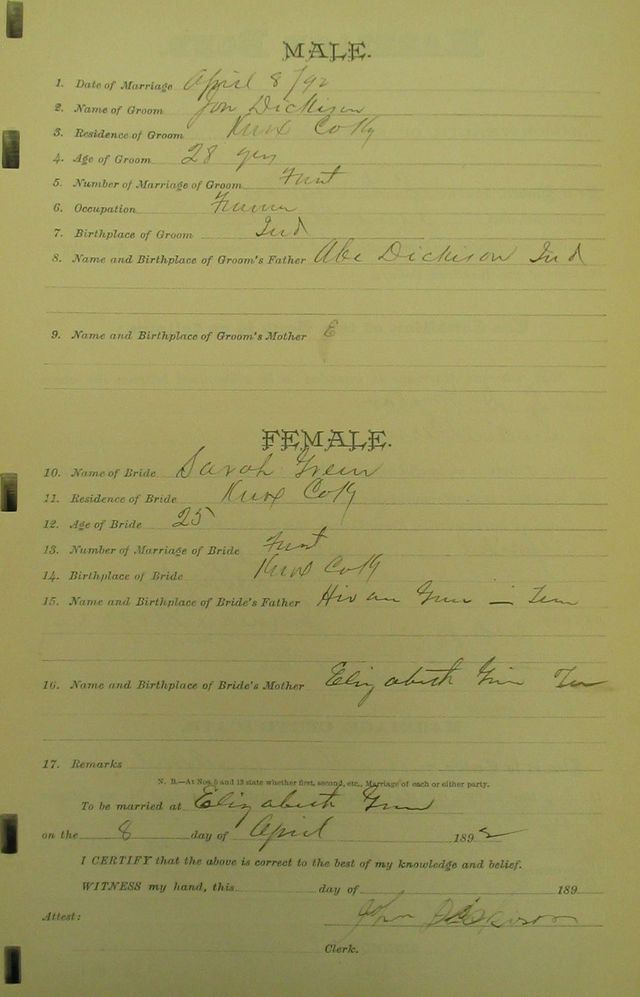 MALE.
1. Date of Marriage April 8/92
2. Name of Groom Jon Dickison
3. Residence of Groom Knox Co Ky
4. Age of Groom 28 yrs
5. Number of Marriage of Groom First
6. Occupation Farmer
7. Birthplace of Groom Ind
8. Name and Birthplace of Groom's Father Abe Dickison Ind
9. Name and Birthplace of Groom's Mother E
FEMALE.
10. Name of Bride Sarah Green
11. Residence of Bride Knox Co Ky
12. Age of Bride 25
13. Number of Marriage of Bride First
14. Birthplace of Bride Knox Co Ky
15. Name and Birthplace of Bride's Father Hiram — Tenn
16. Name and Birthplace of Bride's Mother Elizabeth
17. Remarks
N. B.—At Nos. 5 and 13 state whether first, second, etc., Marriage of each or either party.
To be married at Elizabeth
on the 8 day of April 1892
I CERTIFY that the above is correct to the best of my knowledge and belief.
WITNESS my hand, this day of 189
Attest: John Dickison
Clerk.